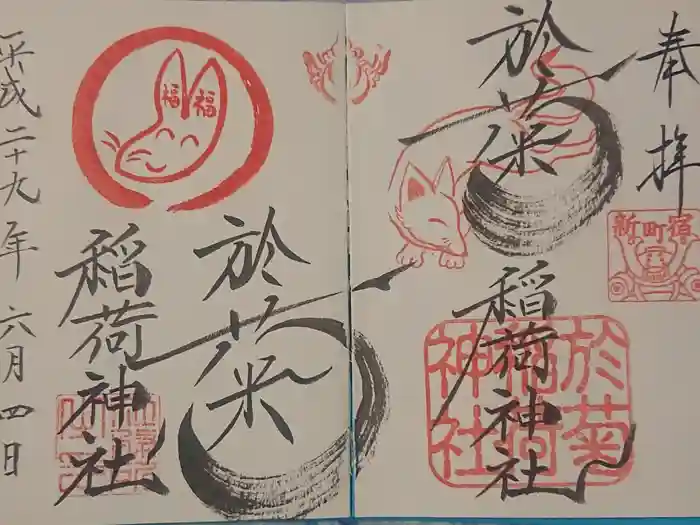 奉拝
新町宿
於菊
稲荷神社
於菊
稲荷
神社
福福
於菊
稲荷神社
平成二十九年六月四日